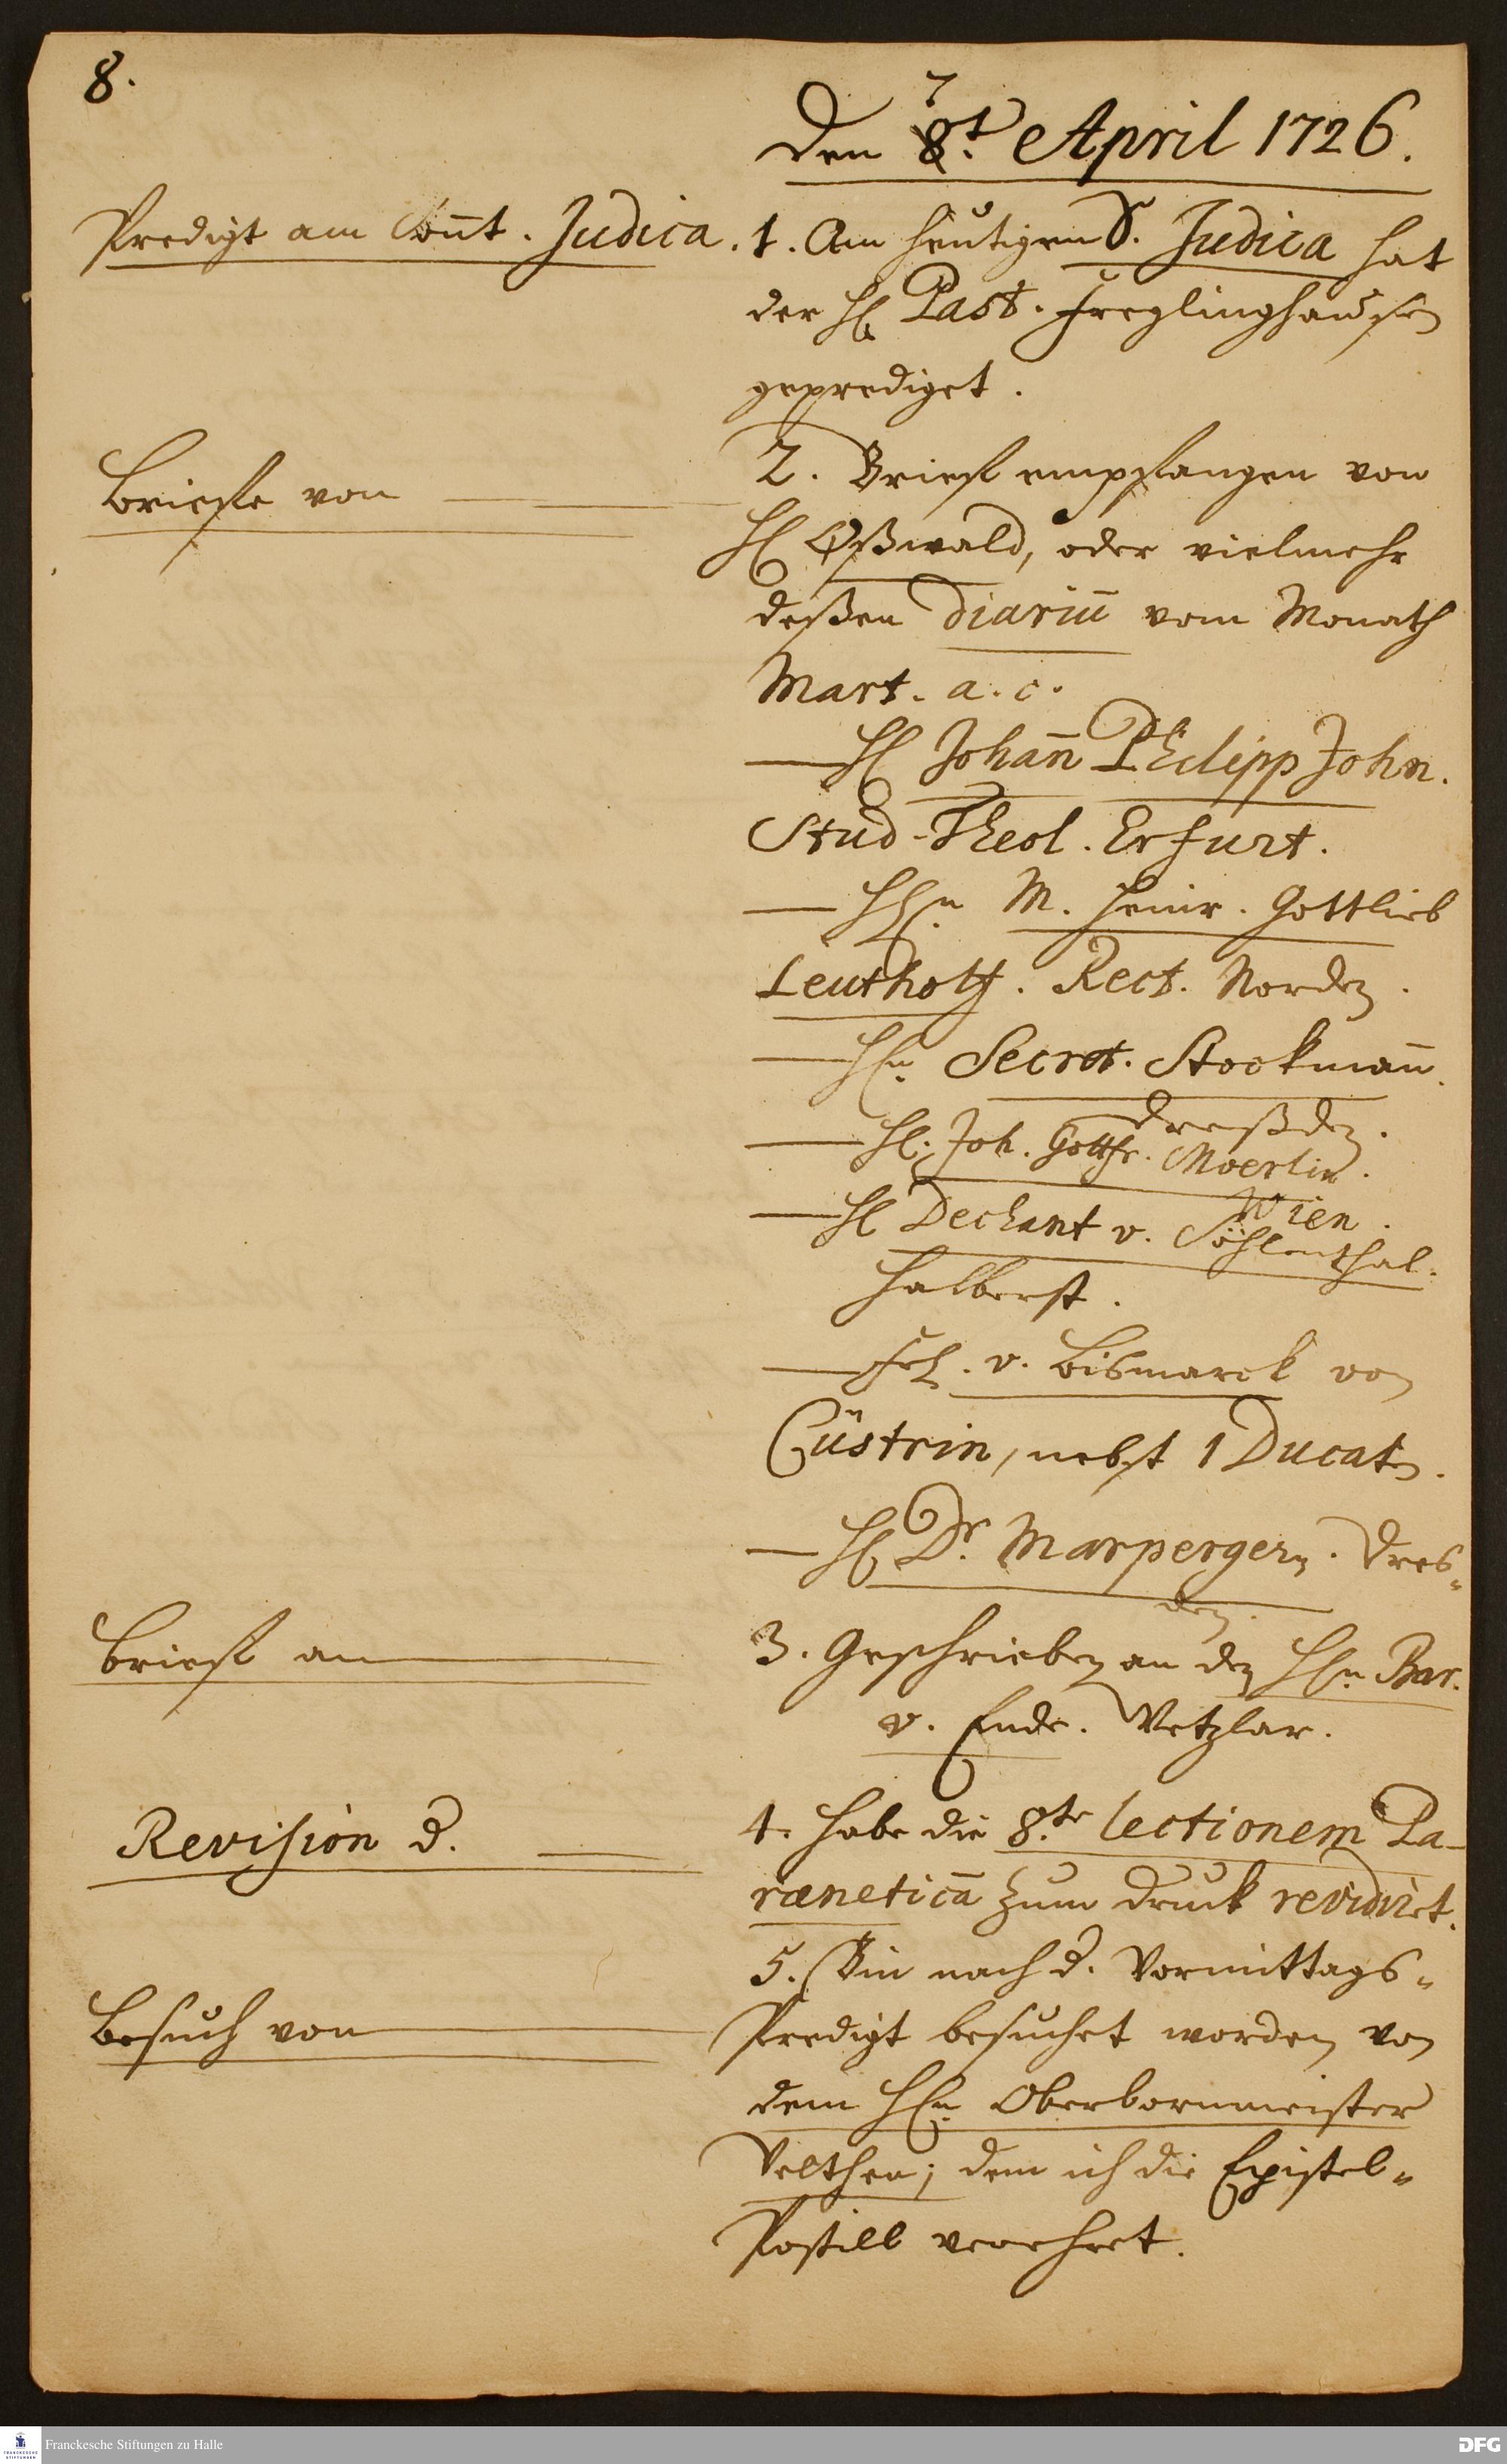 8.
7
Den 8t. April 1726.
Predigt am Soñt. Judica.
1. Am heutigen S. Judica hat
der H. Past. Freylinghausen
geprediget.
Briefe von
2. Brief empfangen von
H. Oßwald, oder vielmehr
deßen Diariũ vom Monath
Mart. a. c.
— H. Johañ Philipp John.
Stud. Theol. Erfurt.
— Hn. M. Heinr. Gottlieb
Leutholtz. Rect. Norden.
— Hn. Secret. Stockmañ.
Dreßden.
— H. Joh. Gottfr. Moerlin.
Wien.
— H. Dechant v. Söhlenthal.
Halberst.
— v. Bismarck von
Cüstrin, nebst 1 Ducaten.
— H. Dr. Marpergern. Dres-
den.
Brief an
3. Geschrieben an den Hn. Bar.
v. Ende. Wetzlar.
Revision d.
4. Habe die 8.te lectionem Pa-
ræneticã zum Druck revidiret.
5. Bin nach d. Vormittags-
Besuch von
Predigt besuchet worden von
dem Hn. Oberbornmeister
Velthen; dem ich die Epistel-
Postill verehret.
FRANCKESCHE STIFTUNGEN
Franckesche Stiftungen zu Halle
DFG